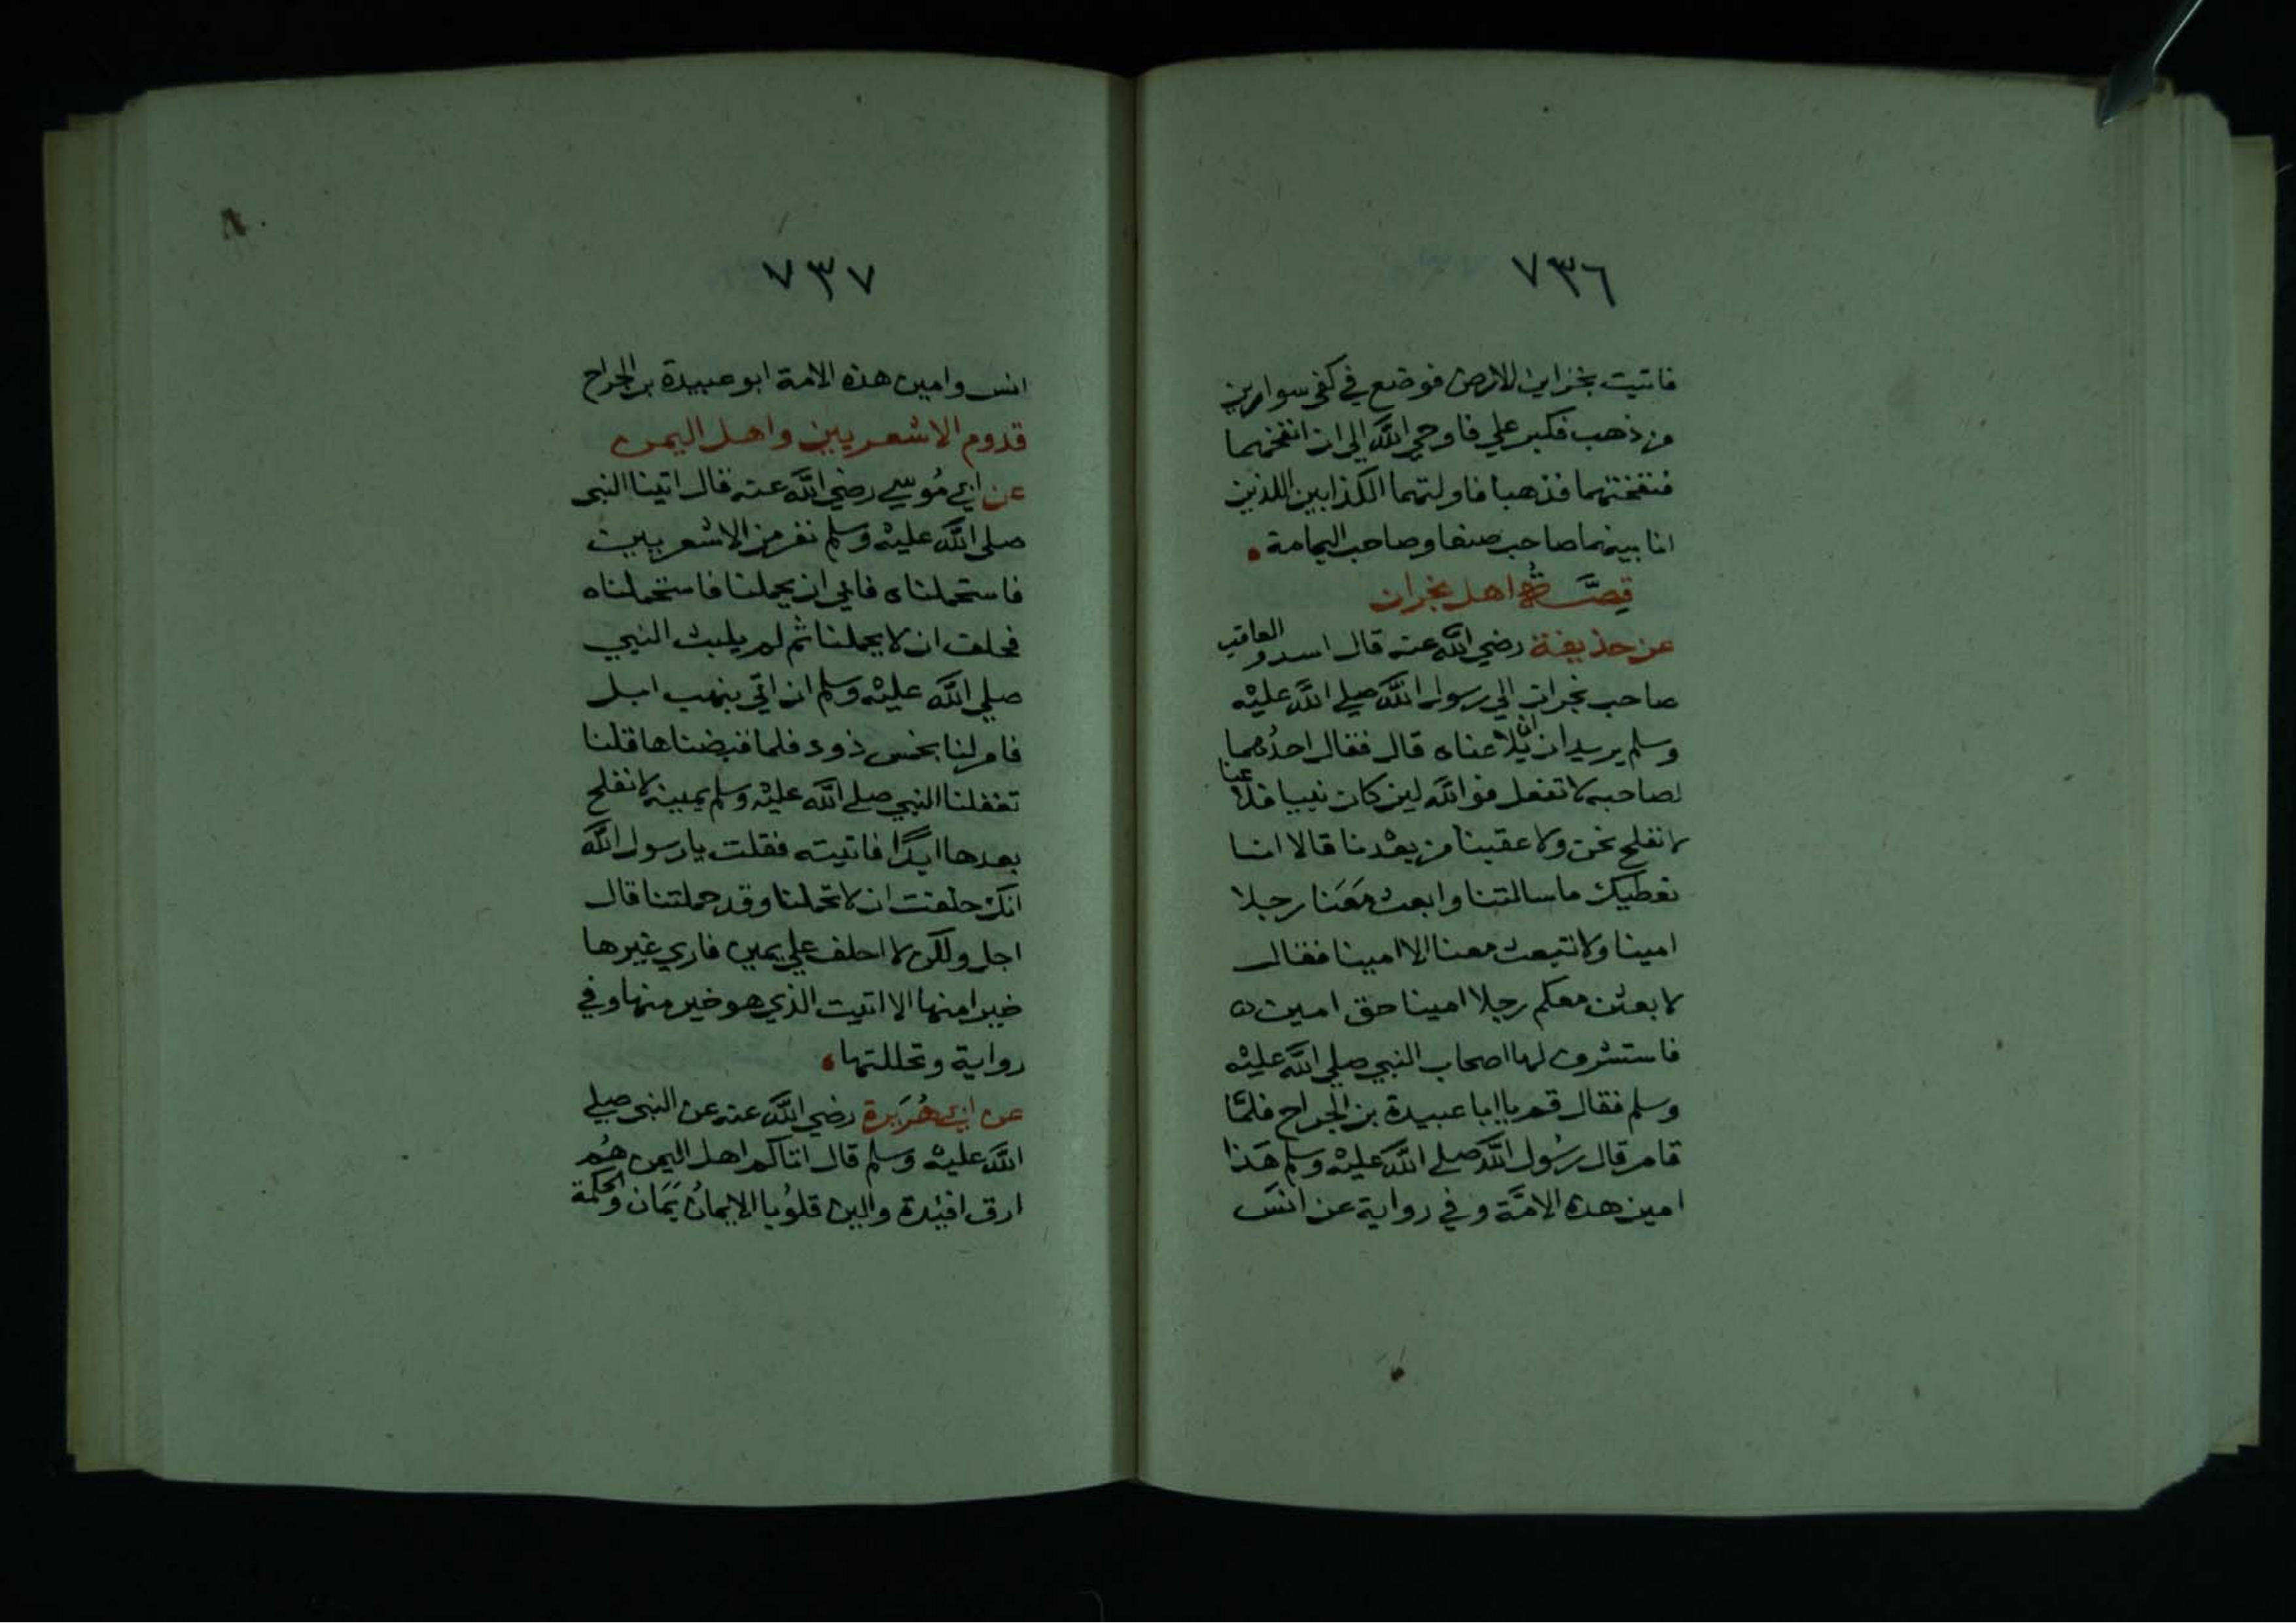 ٧٣٦
فاتيت بخزاين الارض فوضع في كفي سوارين
من ذهب فكبر علي فاوحي الله الي ان انفخهما
فنفختهما فذهبا فاولتهما الكذابين اللذين
انا بينهما صاحب صنعا وصاحب اليمامة
قصة اهل نجران
عن حذيفة رضي الله عنه قال اسد والعاقب
صاحب نجران الي رسول الله صلي الله عليه
وسلم يريدان ان يلاعناه قال فقال احدهما
لصاحبه لا تفعل فوالله لين كان نبيبا فلاعنا
لا نفلح نحن ولا عقبنا من بعدنا قالا انا
نعطيك ما سالتنا وابعث معنا رجلا
امينا ولا تتبعث معنا الا امينا فقال
لابعثن معكم رجلا امينا حق امين
فاستشرف لها اصحاب النبي صلي الله عليه
وسلم فقال قم يا ابا عبيدة بن الجراح فلما
قام قال رسول الله صلي الله عليه وسلم هذا
امين هذه الامة وفي رواية عن انس
٧٣٧
انس وامين هذه الامة ابو عبيدة بن الجراح
قدوم الاشعريين واهل اليمن
عن ابي موسي رضي الله عنه قال اتينا النبي
صلي الله عليه وسلم نفر من الاشعريين
فاستحملناه فابي ان يحملنا فاستحملناه
فحلف ان لا يحملنا ثم لم يلبث النبي
صلي الله عليه وسلم ان اتي بنهب ابل
فامر لنا بخمس ذود فلما قبضناها قلنا
تغفلنا النبي صلي الله عليه وسلم يمينه لا نفلح
بعدها ابدًا فاتيته فقلت يا رسول الله
انك حلفت ان لا تحملنا وقد حملتنا قال
اجل ولكن لا احلف علي يمين فاري غيرها
خيرا منها الا اتيت الذي هو خير منها وفي
رواية وتحللتها
عن ابي هُرَيرة رضي الله عنه عن النبي صلي
الله عليه وسلم قال اتاكم اهل اليمن هُم
ارق افئدة والين قلوبا الايمانُ يَمَان والحكمة